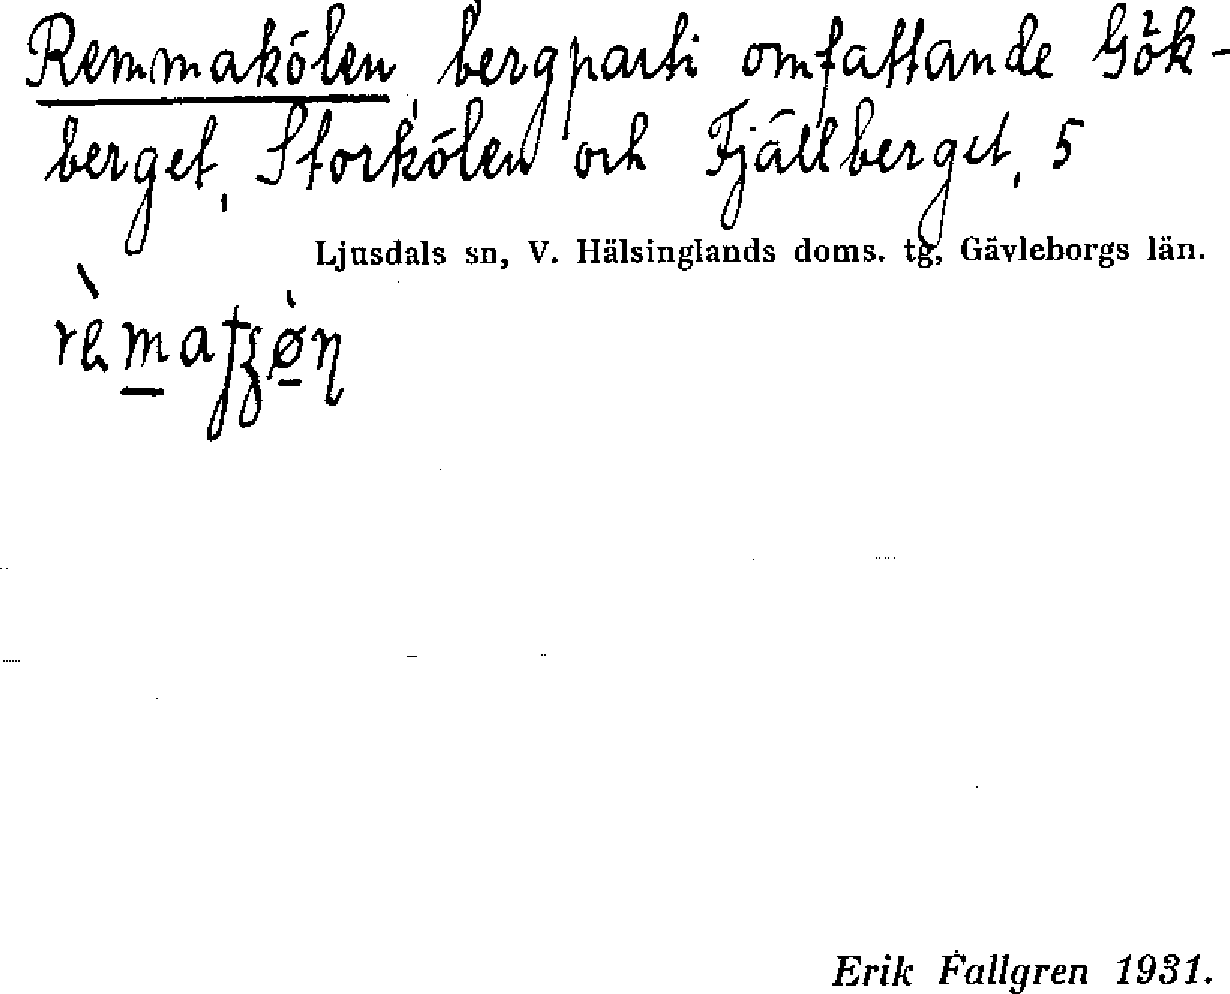 Remmakölen, bergparti omfattande Gök-
berget, Storkölen och Fjällberget, 5
Ljusdals sn, V. Hälsinglands doms. tg, Gävleborgs län.
Erik Fallgren 1931.